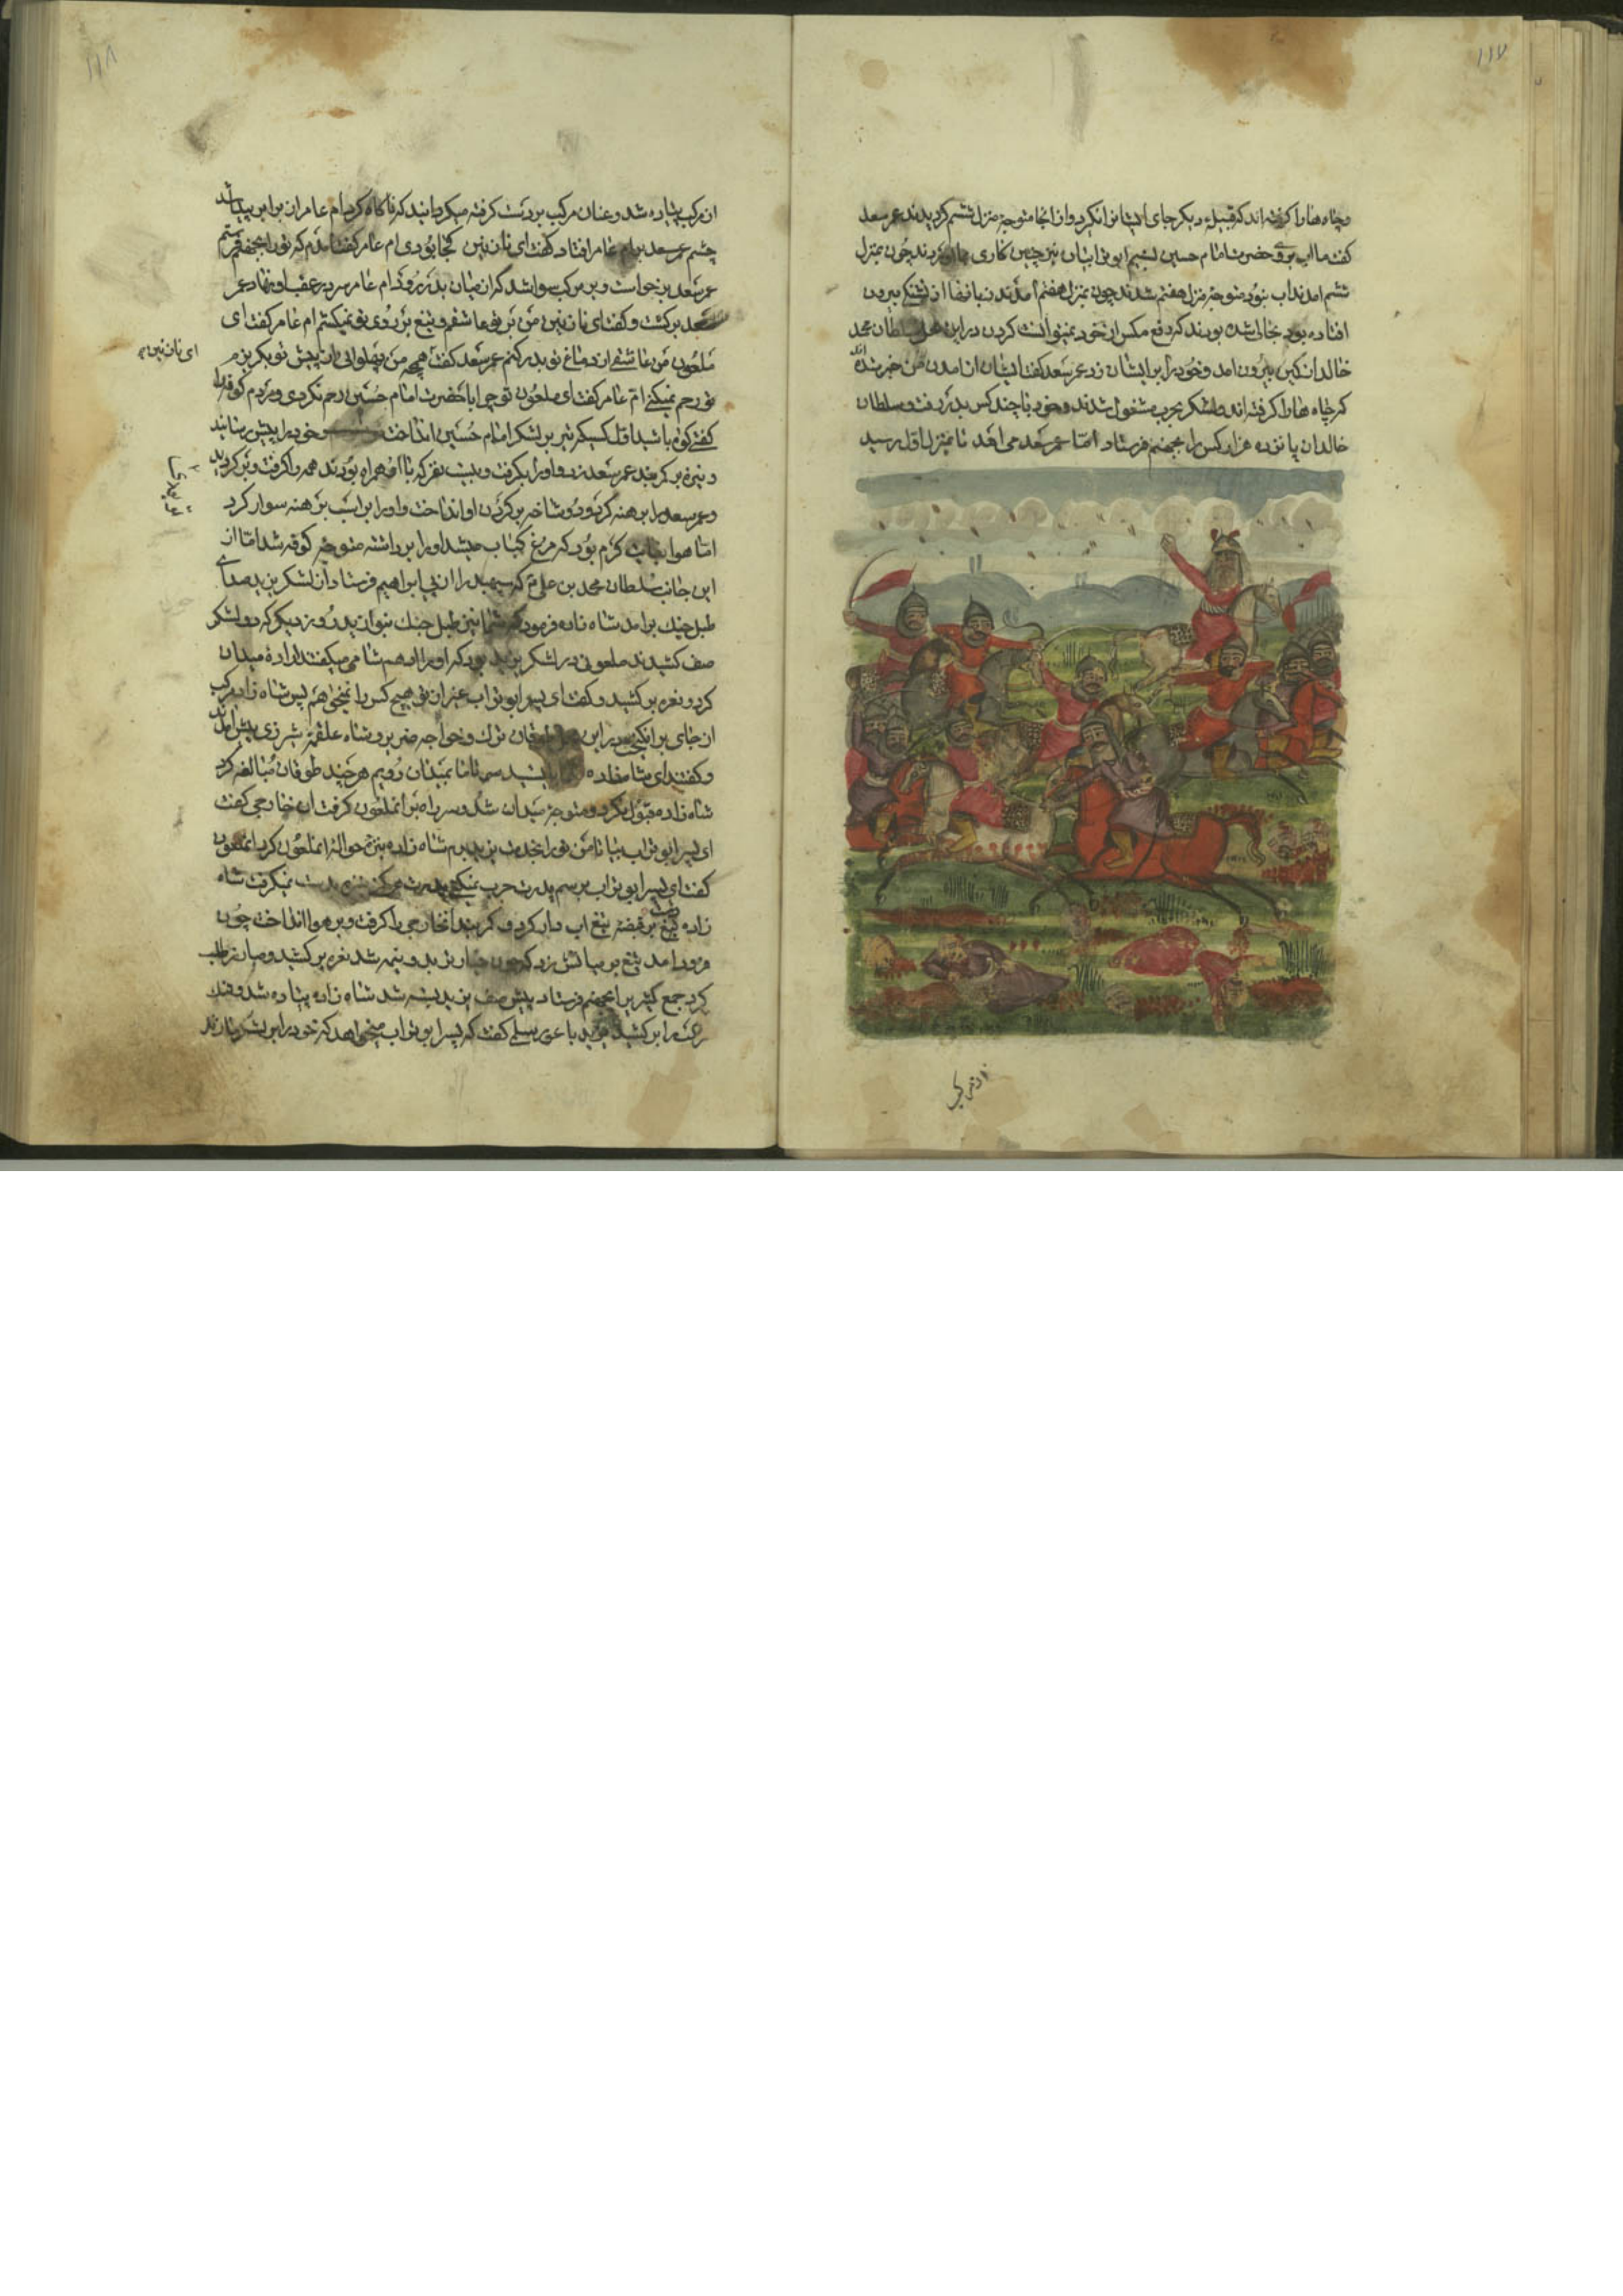 ۱۱۷
و چاه هارا کرفته اند که قبیله دیکر جای ایشانرا نکیرد و از انجا متوجه منزل ششم کردیدند عمر سعد
کفت ما اب بروی حضرت امام حسین بستیم ابو ترابیان نیز چنین کاری با ما کردند چون بمنزل
ششم امدند اب نبود متوجه منزل هفتم شدند چون بمنزل هفتم امدند زبانها از تشنکی بیرون
افتاده بود بحالی شده بودند که دفع مکس از خود نمیتوانست کردن در این محل سلطان محمد
خالد از کمین بیرون امد و خود را بر ایشان زد عمر سعد کفت ایشان از امدن من خبر شده اند
که چاه هارا کرفته اند لشکر بحرب مشغول شدند و خود با چند کس بدر رفت و سلطان
خالد ان پانزده هزار کس را بجهنم فرستاد اما عمر سعد می امد تا بمنزل اول رسید
از مرکب
۱۱۸
از مرکب پیاده شد و عنان مرکب بر دست کرفته میکردانید که ناکاه کرد ام عامر ان برابر پیدا شد
چشم عمر سعد بر ام عامر افتاد کفت ای نازنین کجا بودی ام عامر کفت امدم که تورا بجهنم فرستم
عمر سعد برخواست و بر مرکب سوار شد که از میان بدر رود ام عامر سر در عقب او نهاد عمر
سعد برکشت و کفت ای نازنین من بر تو عاشقم و تیغ بر روی تو نمیکشم ام عامر کفت ای
ملعون من عاشقی از دماغ تو بدر کنم عمر سعد کفت همچه من پهلوانی از پیش تو بکریزم
ای نازنین
تو رحم نمیکنی ام عامر کفت ای ملعون تو چرا با حضرت امام حسین رحم نکردی و مردم کوفه را
کفتی کواه باشید اول کسیکه تیر بر لشکر امام حسین انداخت خود را پیش رسانید
و نیزه بر کمربند عمر سعد زد و اورا بکرفت و بیست نفر که با او همراه بودند همه را کرفت و برکردید
و عمر سعد را برهنه کرد و دو شاخه بر کردن او انداخت و اورا بر اسب برهنه سوار کرد
اما هوا بغایت کرم بود که مرغ کباب میشد اورا برداشته متوجه کوفه شد اما از
این جانب سلطان محمد بن علی که سپهبد را از پی ابراهیم فرستاد از لشکر یزید صدای
طبل جنک بر امد شاه زاده فرمود که شما نیز طبل جنک بنوازید روز دیکر که دو لشکر
صف کشیدند ملعونی در لشکر یزید بود که اورا ادهم شامی میکفتند اراده میدان
کرد و نعره بر کشید و کفت ای پسر ابو تراب بغیر از تو هیچ کس را نمیخواهم پس شاه زاده مرکب
از جای برانکیخت در این طوقان ترک و خواجه ضریر و شاه علقمه شیرزی پیش امدند
و کفتند ای شاه زاده تا ما بمیدان رویم هر چند طوقان مبالغه کرد
شاه زاده قبول نکرد و متوجه میدان شد و سر راه بر انملعون کرفت ان خارجی کفت
ای پسر ابو تراب بیا تا من تورا بخدمت یزید برم شاه زاده نیزه حواله انملعون کرد انملعون
کفت ای پسر ابو تراب برسم پدرت حرب نمیکنی پدرت هرکز نیزه بدست نمیکرفت شاه
زاده دست بر قبضه تیغ اب دار کرد و کمربند انخارجی را کرفت و بر هوا انداخت چون
فرود امد تیغ بر میانش زد که چون خیار تر بدو نیمه شد نعره بر کشید و مبارز طلب
کرد جمع کثیر برا بجهنم فرستاد پیش صف یزید بسته شد شاه زاده پیاده شد و تنک
مرکب را بر کشید یزید با عور سلمی کفت که پسر ابو تراب میخواهد که خود را بر لشکر ما زند